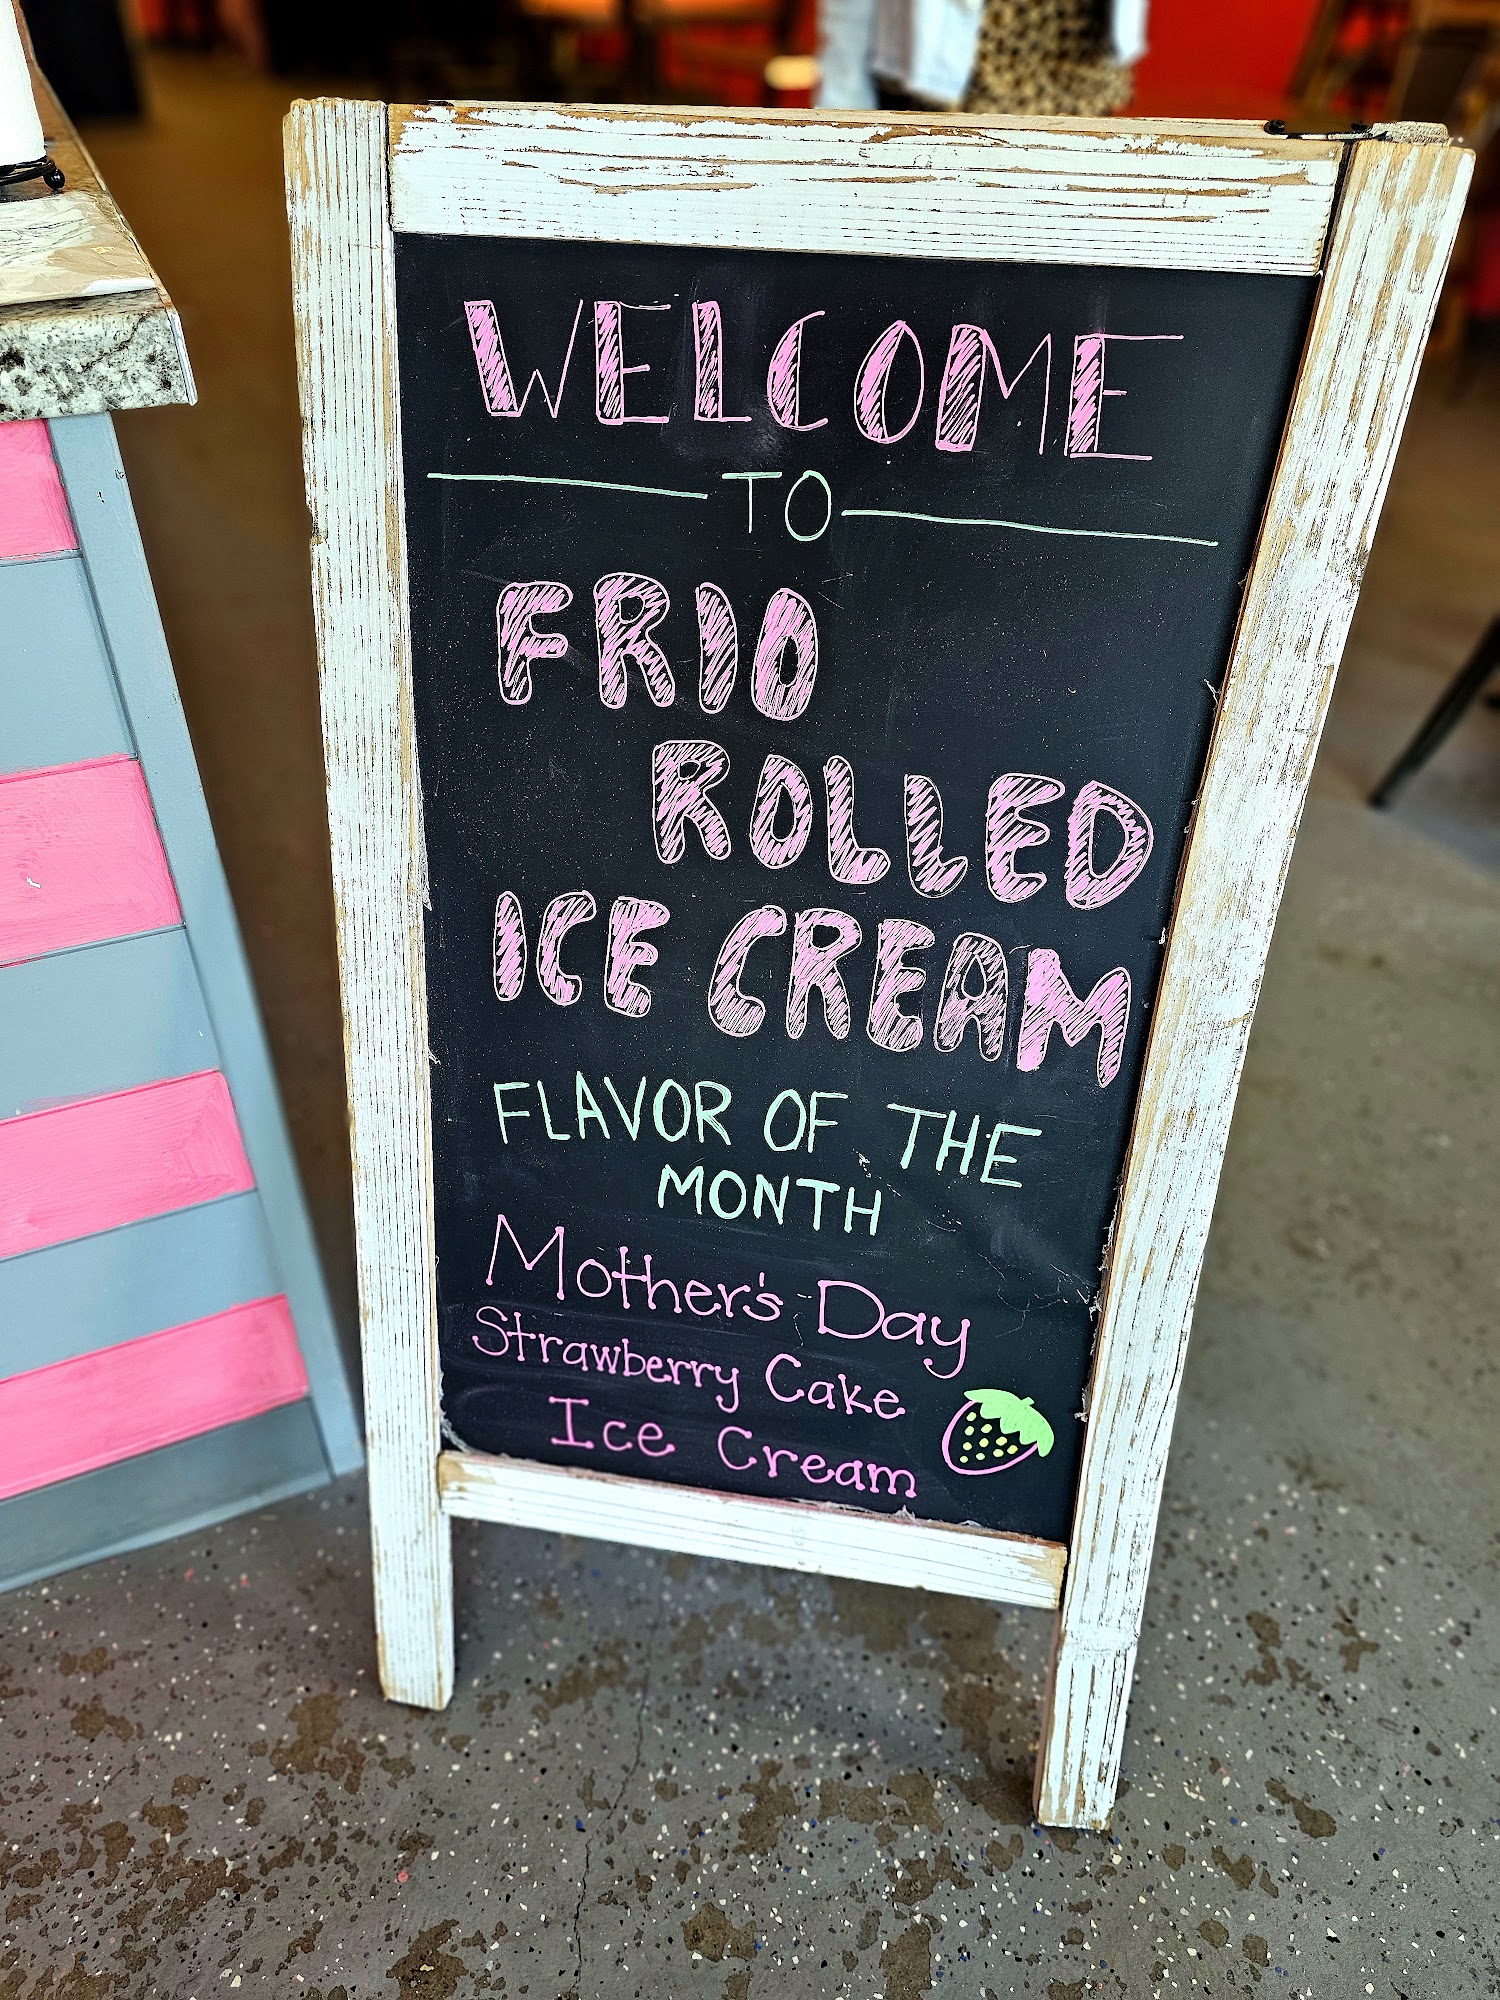 WELCOME
TO
FRIO
ROLLED
ICE CREAM
FLAVOR OF THE
MONTH
Mother's Day
Strawberry Cake
Ice Cream